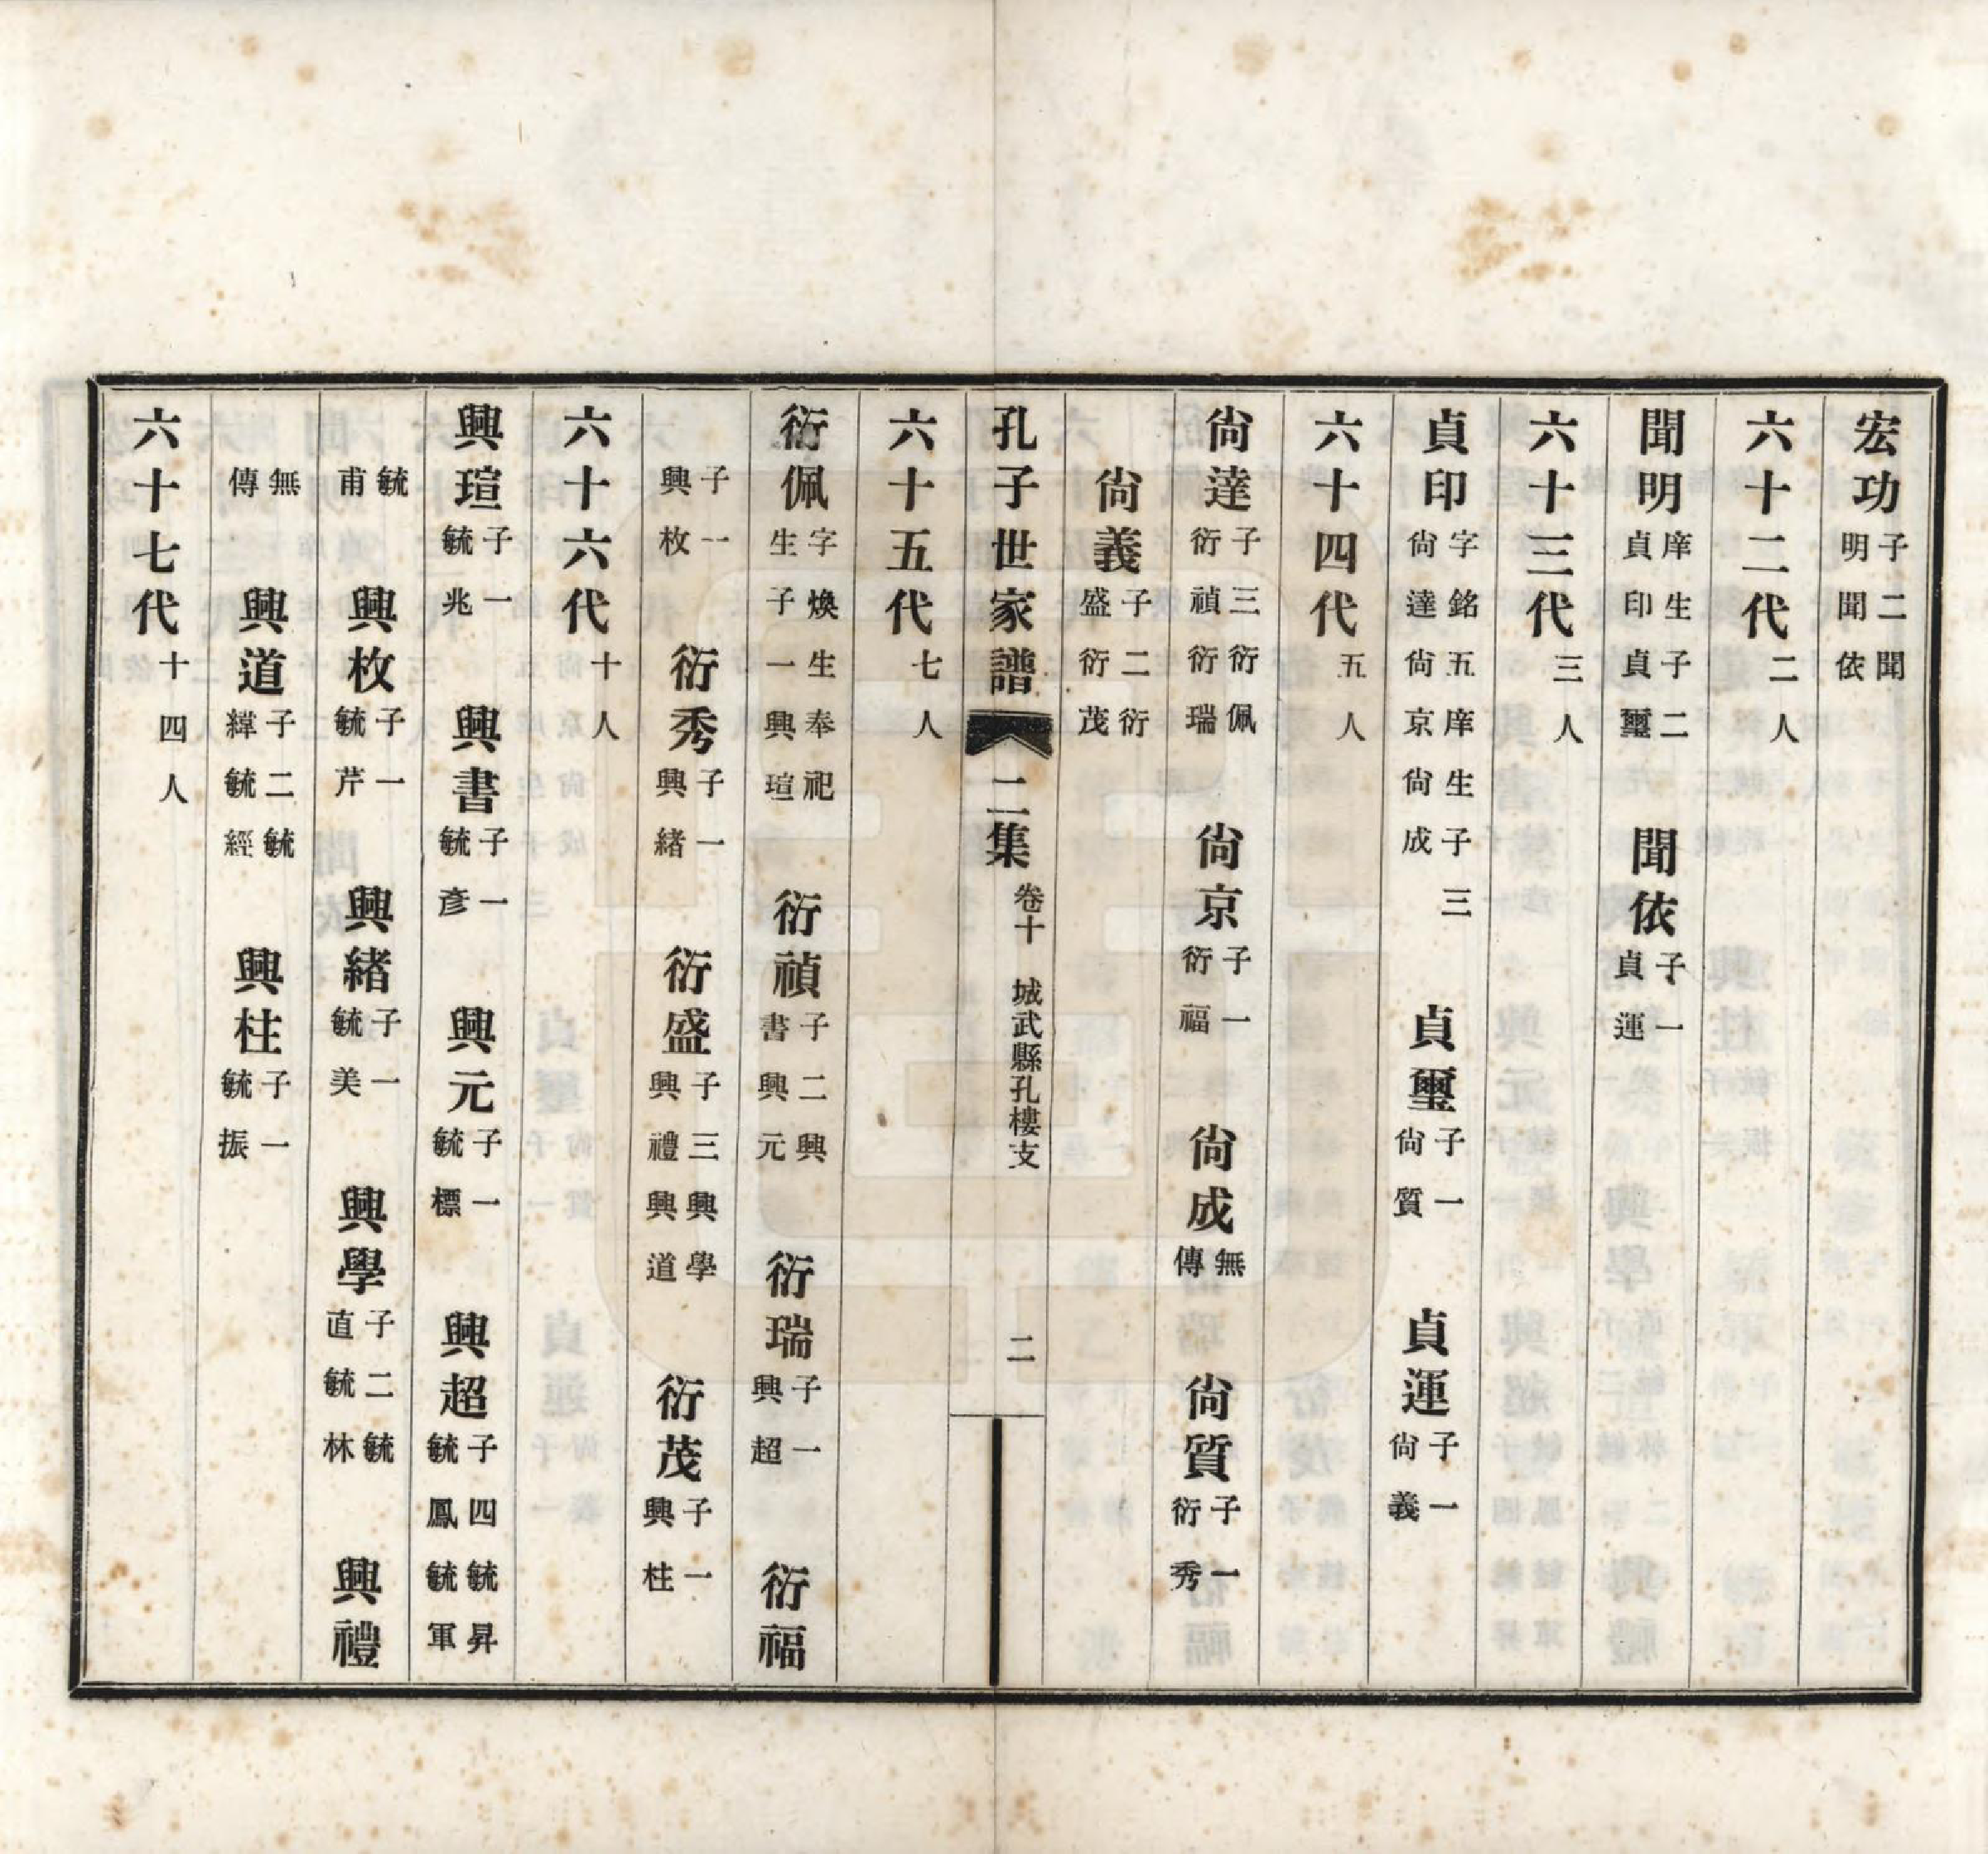 宏功 子二聞明聞依
六十二代 二人
聞明 庠生子二貞印貞璽 聞依 子一貞運
六十三代 三人
貞印 字銘五庠生子三尙達尙京尙成 貞璽 子一尙質 貞運 子一尙義
六十四代 五人
尙達 子三衍佩衍禎衍瑞 尙京 子一衍福 尙成 無傳 尙質 子一衍秀
尙義 子二衍盛衍茂
孔子世家譜 二集 卷十 城武縣孔樓支 二
六十五代 七人
衍佩 字煥生奉祀生子一興瑄 衍禎 子二興書興元 衍瑞 子一興超 衍福
子一興枚 衍秀 子一興緒 衍盛 子三興學興禮興道 衍茂 子一興柱
六十六代 十人
興瑄 子一毓兆 興書 子一毓彥 興元 子一毓標 興超 子四毓昇毓鳳毓軍
毓甫 興枚 子一毓芹 興緒 子一毓美 興學 子二毓直毓林 興禮
無傳 興道 子二毓緯毓經 興柱 子一毓振
六十七代 十四人